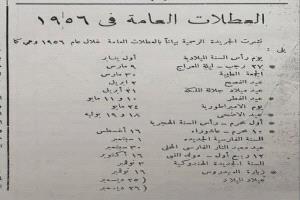 العطلات العامة فى ١٩٥٦
نشرت الجريدة الرسمية بيانا بالعطلات العامة خلال عام ١٩٥٦ وهى كا
يلى :
يوم رأس السنة الميلادية أول يناير
٢٧ رجب - ليلة المعراج ٩ مارس
الجمعة الطيبة ٣٠ مارس
عيد الفصح ٢ ابريل
عيد ميلاد جلالة الملكة ٢١ أبريل
عيد الفطر ١٠ و ١١ مايو
يوم الامبراطورية ٢٤ مايو
عيد الاضحى ١٨ و ١٩ يوليه
أول محرم - رأس السنة الهجرية
١٠ محرم - عاشوراء ١٦ أغسطس
السنة الفارسية الجديدة سبتمبر
عيد ميلاد النار الفارسى المحلى سبتمبر
١٢ ربيع أول - مولد النبى ١٦ أكتوبر
السنة الجديدة الهندوكية ٣ نوفمبر
زيارة العيدروس نوفمبر
عيد الميلاد ٢٥ ديسمبر
٢٦ ديسمبر